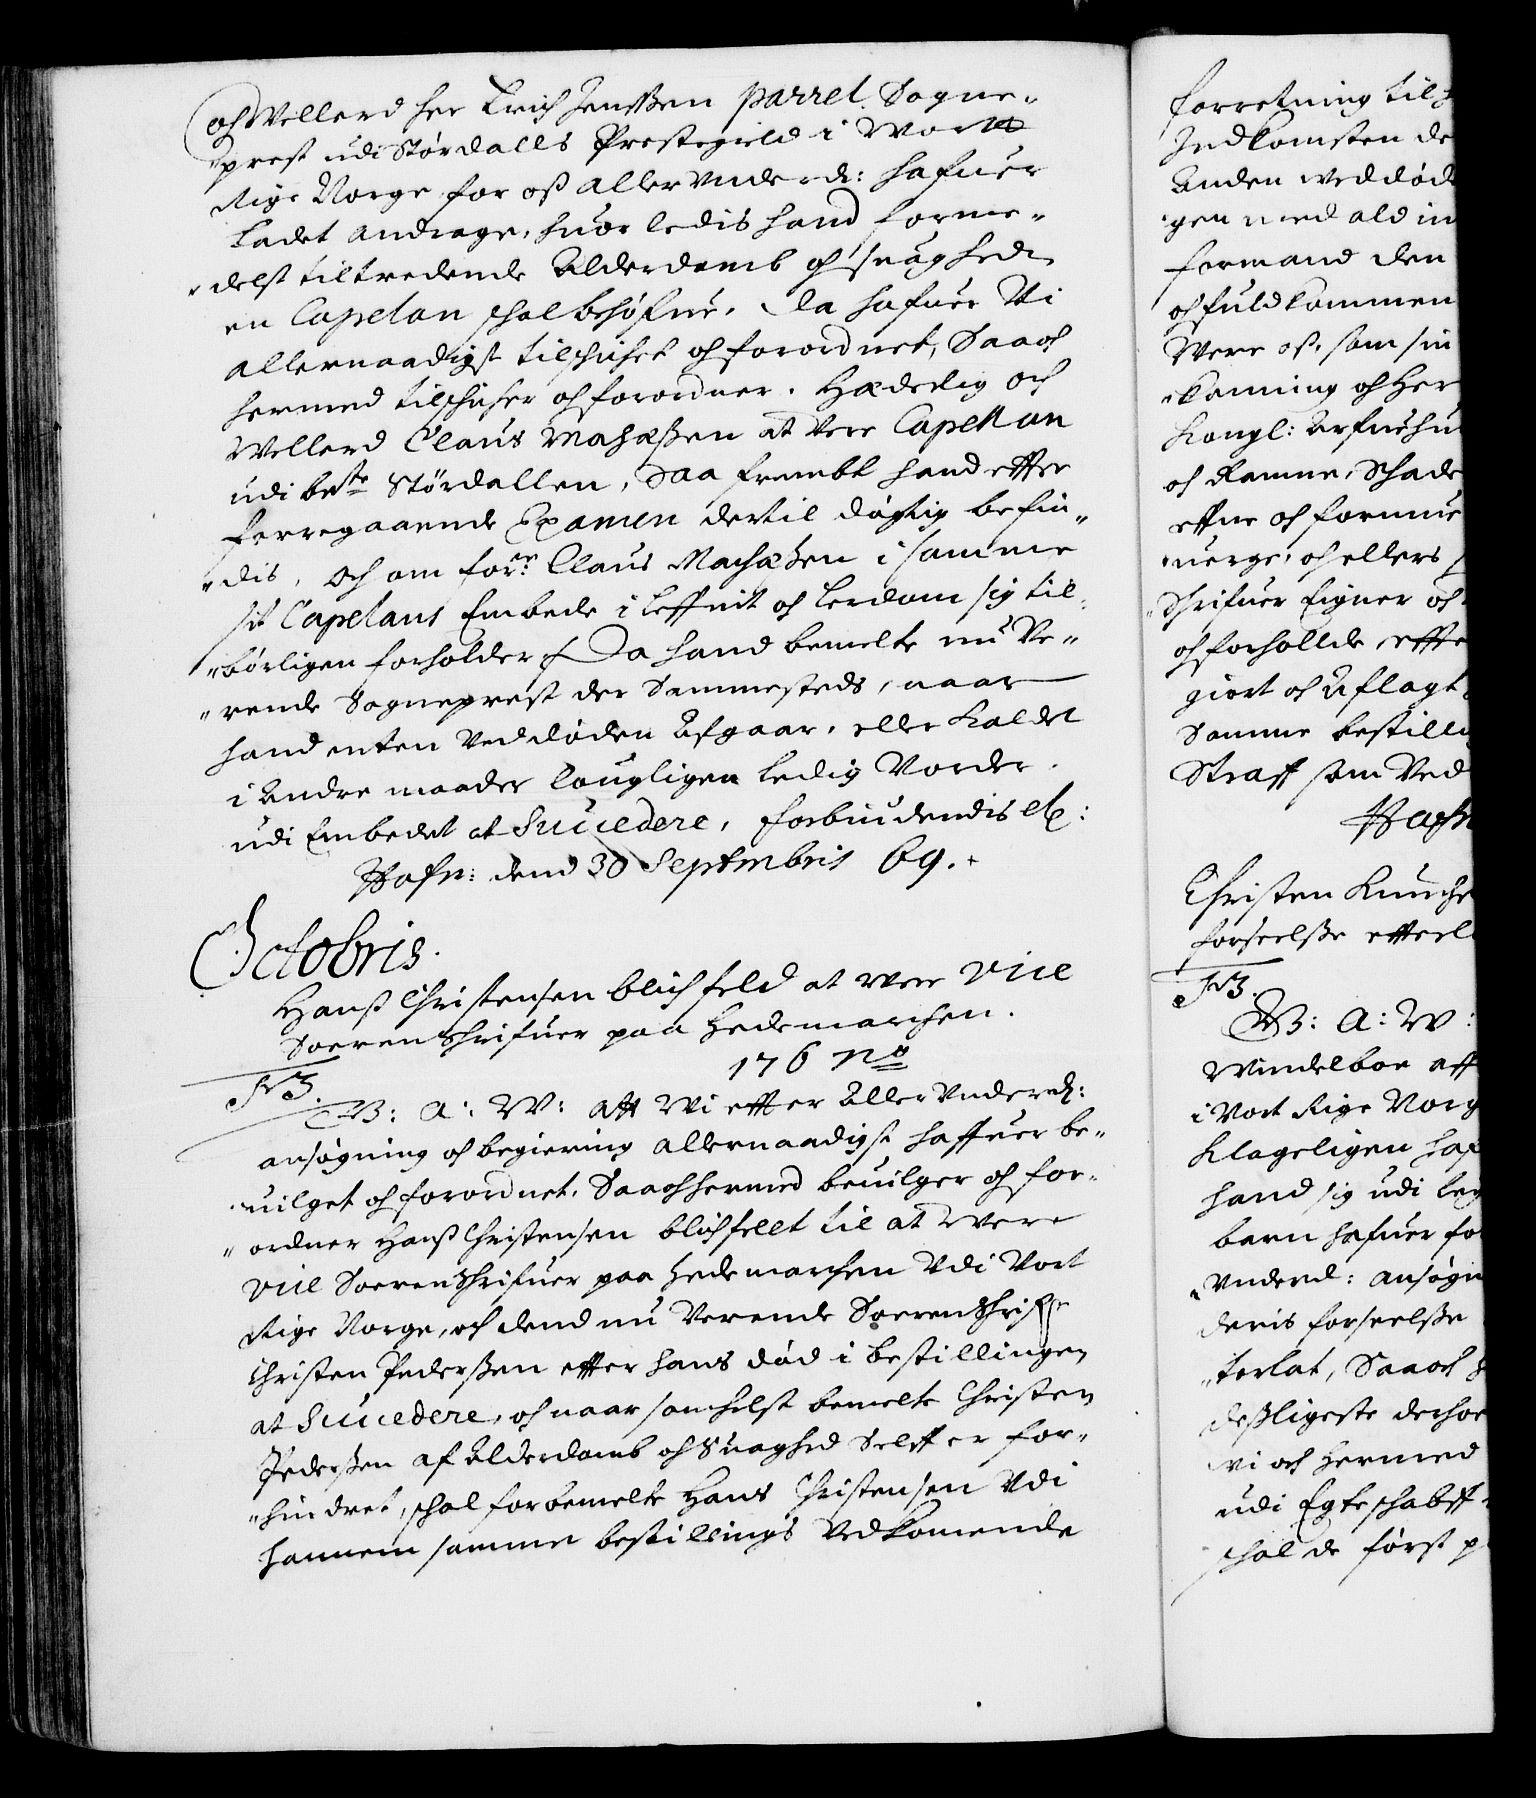 och Wellerd her Erich Jenssen parrel. Sogne„
„prest udi Størdalls Prestegield i Wort
Rige Norge for oß aller underd: hafuer
ladet andrage, huor ledis hand forme„
„delst tiltredende Alderdomb och suaghed
en Capelan schal behøfue. Da hafuer Wi
allernaadigst tilschichet och forordnet, Saa och
hermed tilschicher och forordner. Hæderlig och
Wellerd Claus Machæßen at vere Capellan
udi bete Størdallen, Saa frembt hand effter
forregaaende Examen dertil døgtig befin„
„dis, och om forne Claus Machæßen i samme
sit Capelans Embede i Leffnit och lerdom sig til„
„børligen forholder, Da hand bemelte nu Ve„
„rende Sogneprest der Sammesteds, naar
hand enten ved døden Afgaar, eller kaldet
i Andre maader lougligen ledig Vorder.
udi Embedet at Succedere, forbiudendis etc:
Hafn: dend 30 Septembris 69.
Octobris.
Hanß Christensen blichfeld at were vice
Sorenschrifuer paa Hedemarchen.
176 no
F3.
G: A: W: att Wi effter Aller underd:
ansøgning och begiering allernaadigst haffuer be„
„uilget och forordnet, Saa och hermed beuilger och for„
„ordner Hanß Christensen blichfellt til at were
vice Sorenschrifuer paa Hedemarchen Udi Vort
Rige Norge, och dend nu Verende Sorenschrifr
Christen Pederßen effter hans død i bestillingen
at Succedere, och naar somhelst bemelte Christen
Pederßen af Alderdomb och Suaghed Selff er for„
„hindret, schal forbemelte Hans Christensen Udi
hannem samme bestillings Vedkomende
forretning til
Indkomsten de
Anden ved død
gen med ald in
formand den
och fuldkommen
Were oß, som sin
„konning och Her
Kongl: Arfuehu
och Ramme, Schade
effne och formue
„uerge, och ellers
Schrifuer Eigner och
och forhollde effte
giort och Aflagt
Samme bestilli
Straff som Ved
Hafn
Christen Kun
forseelße effterl
F3.
G: A: W:
Windelboe aff
i Vort Rige Norg
Klageligen haf
hand sig udi leg
barn hafuer fo
Underd: ansøgn
deris forseelße
„terlat, Saa och
deßligeste derhoe
vi och hermed
udi Egteschabff
schal de først p